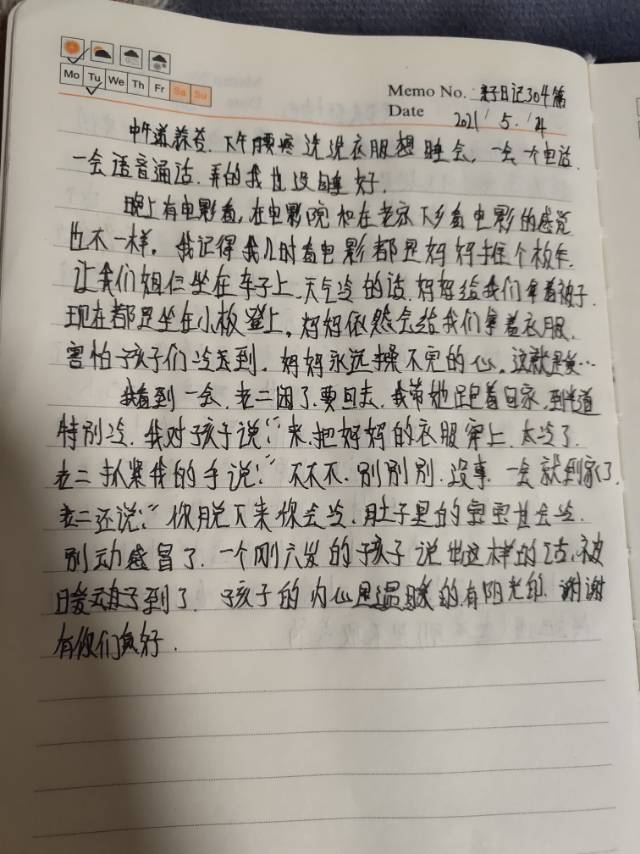 Mo Tu We Th Fr Sa Su
Memo No. 亲子日记304篇
Date 2021/5/24
中午送养荅.下午腰疼洗洗衣服想睡会,一会一个电话.
一会语音通话.弄的我也没睡好.
晚上有电影看,在电影院和在老家下乡看电影的感觉
也不一样,我记得我儿时看电影都是妈妈推个板车.
让我们姐仨坐在车子上.天气冷的话.妈妈给我们拿着被子.
现在都是坐在小板凳上,妈妈依然会给我们拿着衣服.
害怕孩子们冷感到.妈妈永远操不完的心,这就是爱…
我看到一会.老二困了.要回去.我带她跑着回家.到半道
特别冷.我对孩子说:“来.把妈妈的衣服穿上.太冷了.
老二抓紧我的手说:“不不不.别别别.没事.一会就到家了.
老二还说:“你脱下来你会冷.肚子里的宝宝也会冷.
别动感冒了.一个刚六岁的孩子说出这样的话.被
暖到了.孩子的内心是温暖的.有阳光的.谢谢
有你们真好.